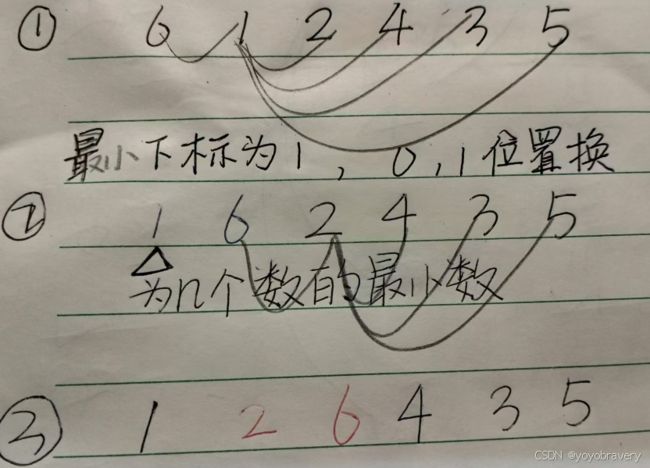 ① 6 1 2 4 3 5
最小下标为1, 0,1位置换
② 1 6 2 4 3 5
为n个数百的最小数
③ 1 2 6 4 3 5
CSDN @yoyobravery